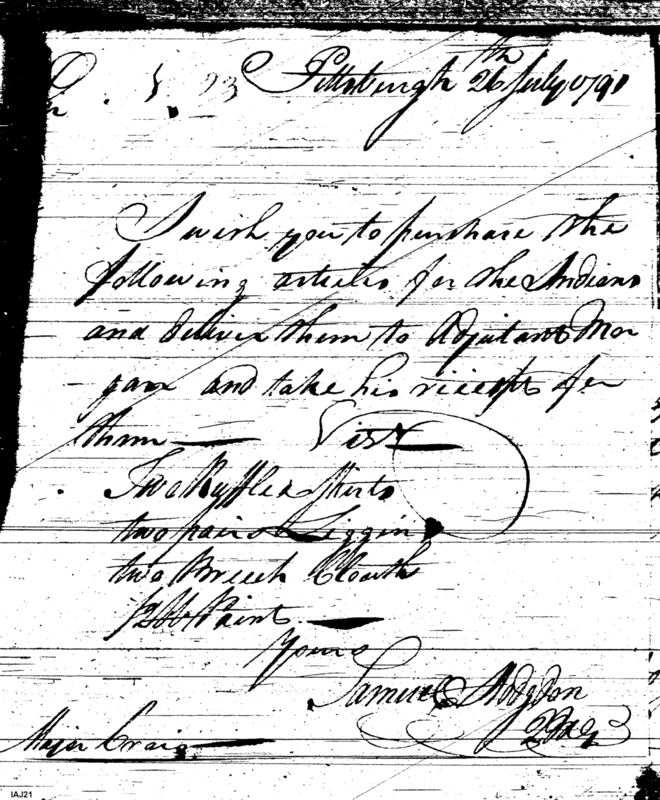 Pittsburgh 26th July 1791
I wish you to purchase the
following articles for the Indians
and deliver them to Adjutant Mor
gan and take his reciept for
them — Vist —
Two Ruffled Shirts
two pair Leggin
two Breech Clouth
Paint —
Yours
Samuel Hodgdon
QMG
Major Craig —
IAJ21